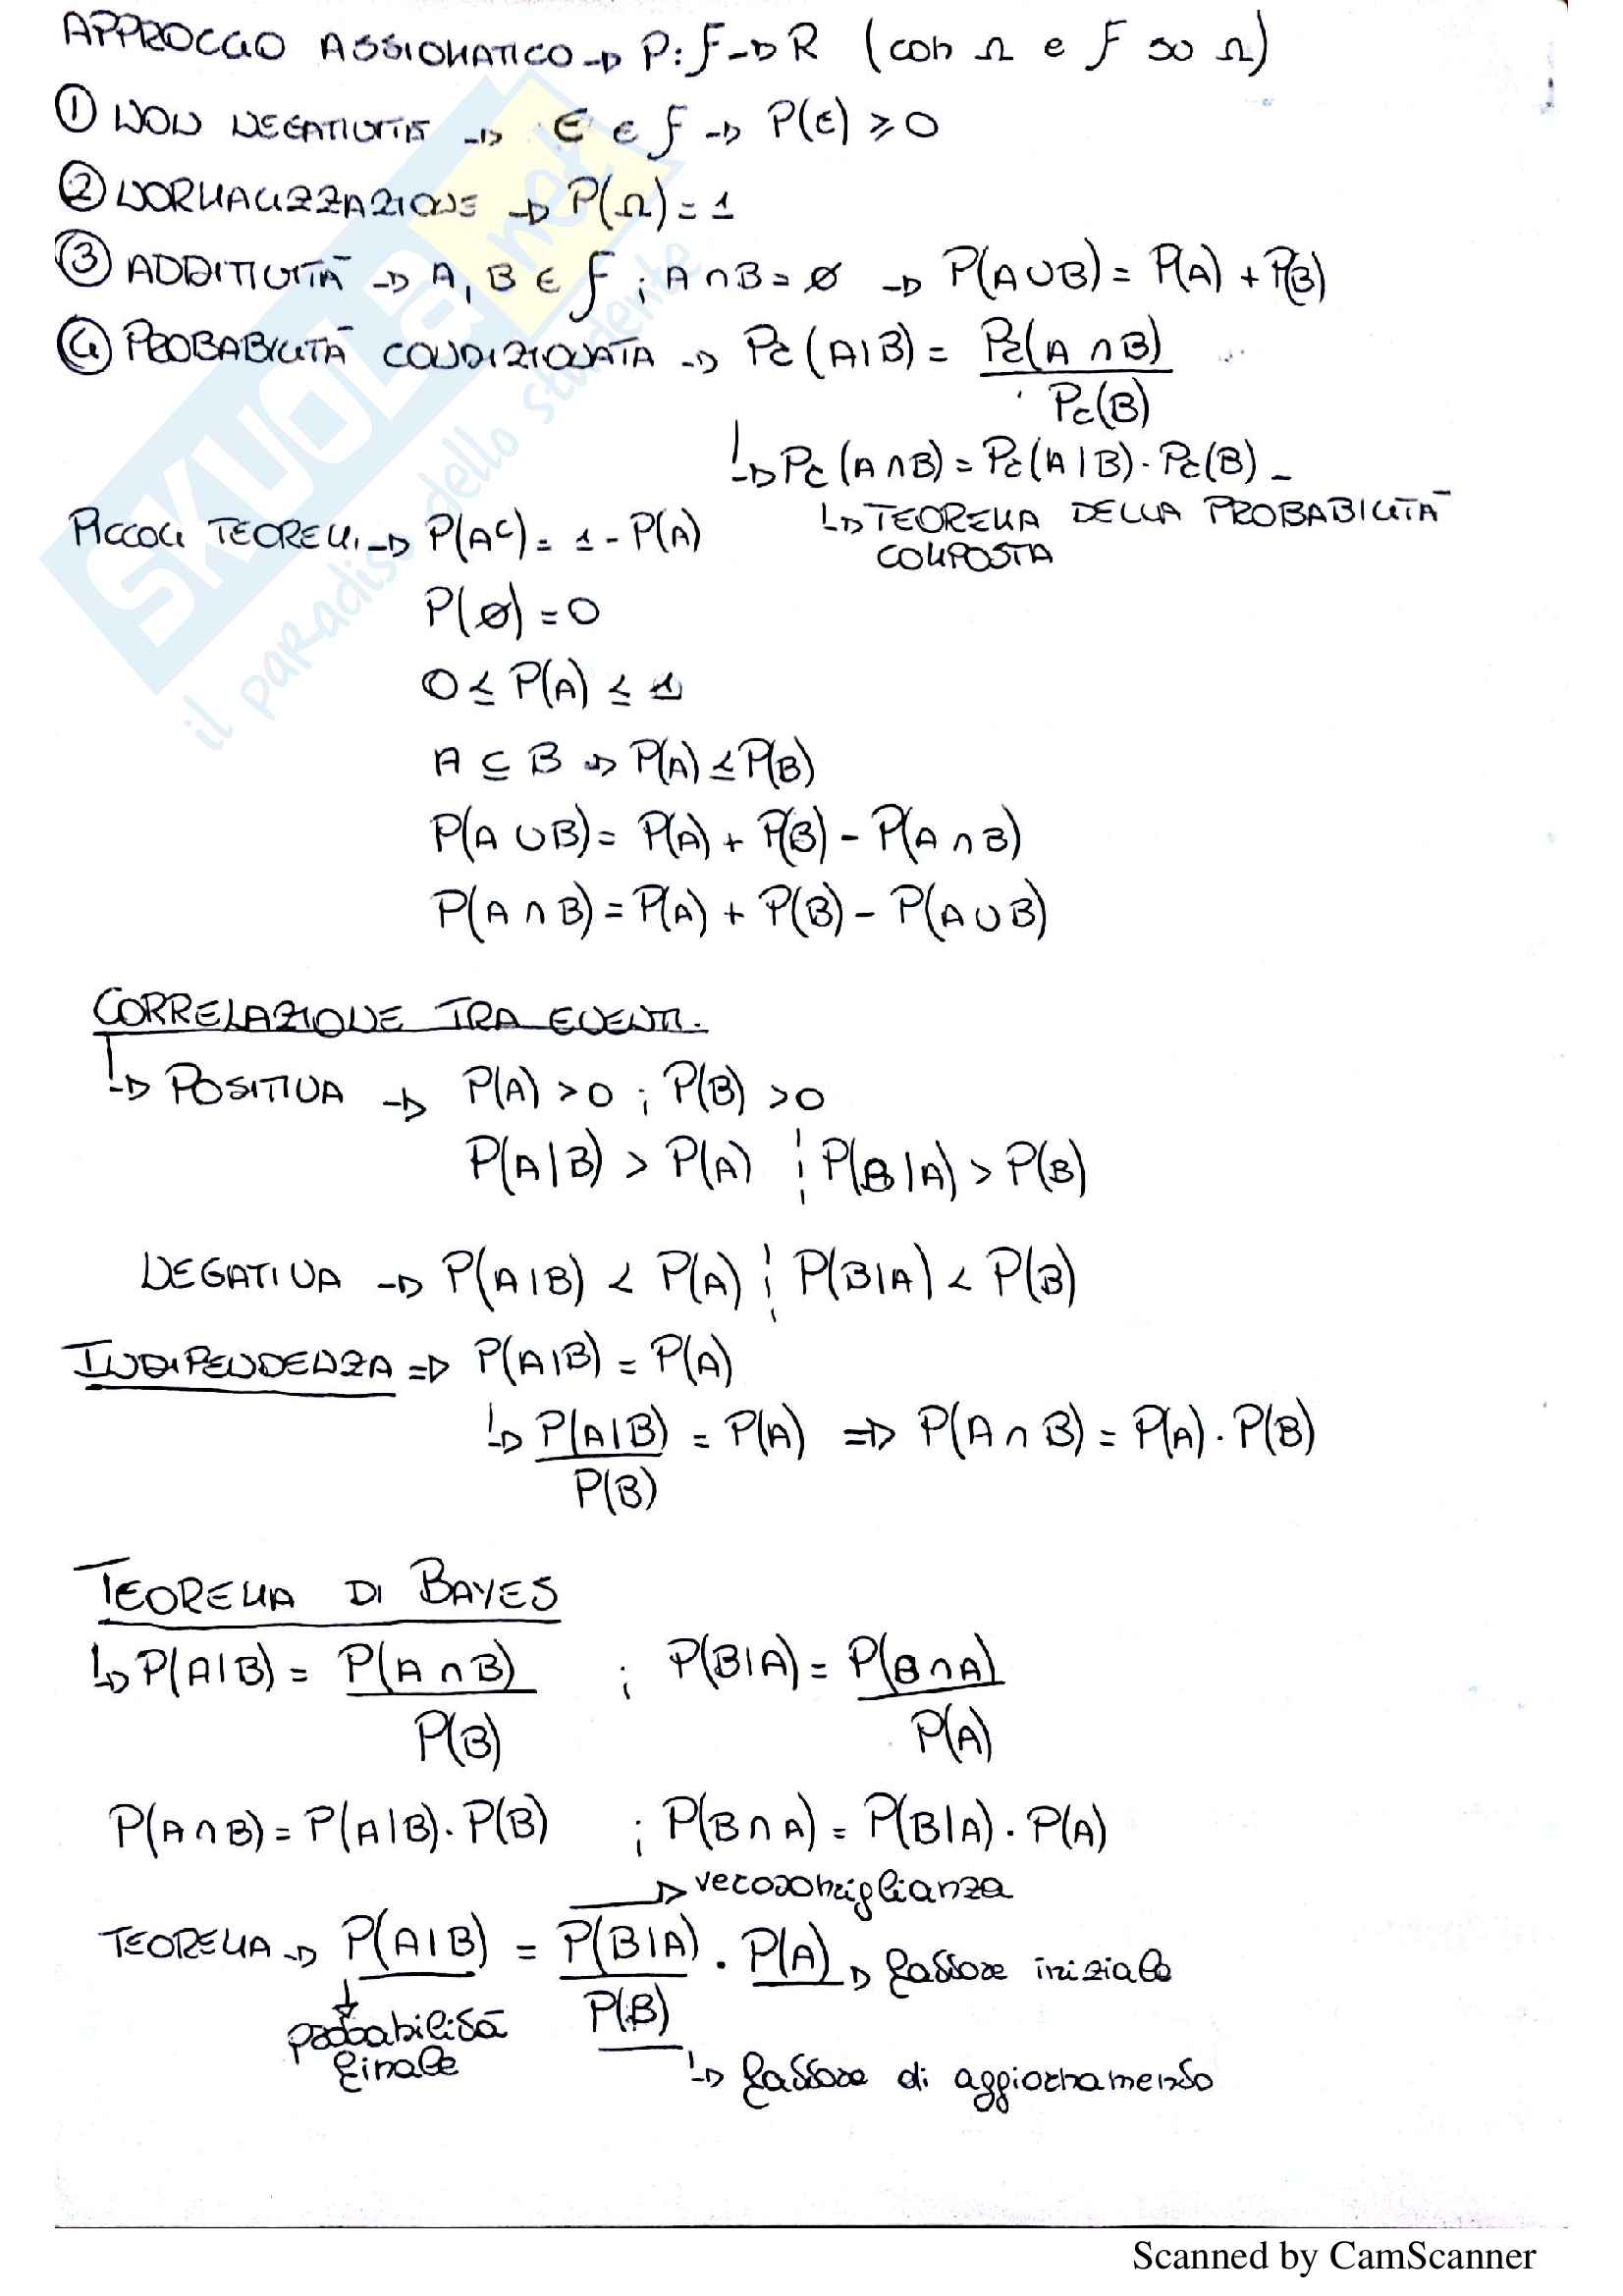 APPROCCIO ASSIOMATICO → P: F → R (con Ω e F su Ω)
① NON NEGATIVITÀ → E ∈ F → P(E) ⩾ 0
② NORMALIZZAZIONE → P(Ω) = 1
③ ADDITIVITÀ → A, B ∈ F ; A ∩ B = ∅ → P(A ∪ B) = P(A) + P(B)
④ PROBABILITÀ CONDIZIONATA → Pc(A|B) = Pc(A ∩ B) / Pc(B)
↳ Pc(A ∩ B) = Pc(A|B) · Pc(B) –
↳ TEOREMA DELLA PROBABILITÀ
COMPOSTA
PICCOLI TEOREMI → P(Aᶜ) = 1 - P(A)
P(∅) = 0
0 ≤ P(A) ≤ 1
A ⊆ B → P(A) ≤ P(B)
P(A ∪ B) = P(A) + P(B) - P(A ∩ B)
P(A ∩ B) = P(A) + P(B) - P(A ∪ B)
CORRELAZIONE TRA EVENTI.
↳ POSITIVA → P(A) > 0 ; P(B) > 0
P(A|B) > P(A) ¦ P(B|A) > P(B)
NEGATIVA → P(A|B) < P(A) ¦ P(B|A) < P(B)
INDIPENDENZA ⇒ P(A|B) = P(A)
↳ P(A|B) / P(B) = P(A) ⇒ P(A ∩ B) = P(A) · P(B)
TEOREMA DI BAYES
↳ P(A|B) = P(A ∩ B) / P(B) ; P(B|A) = P(B ∩ A) / P(A)
P(A ∩ B) = P(A|B) · P(B) ; P(B ∩ A) = P(B|A) · P(A)
→ verosomiglianza
TEOREMA → P(A|B) = P(B|A) / P(B) · P(A) → fattore iniziale
probabilità
finale
↳ fattore di aggiornamento
SKUOLA.net
il paradiso dello studente
Scanned by CamScanner